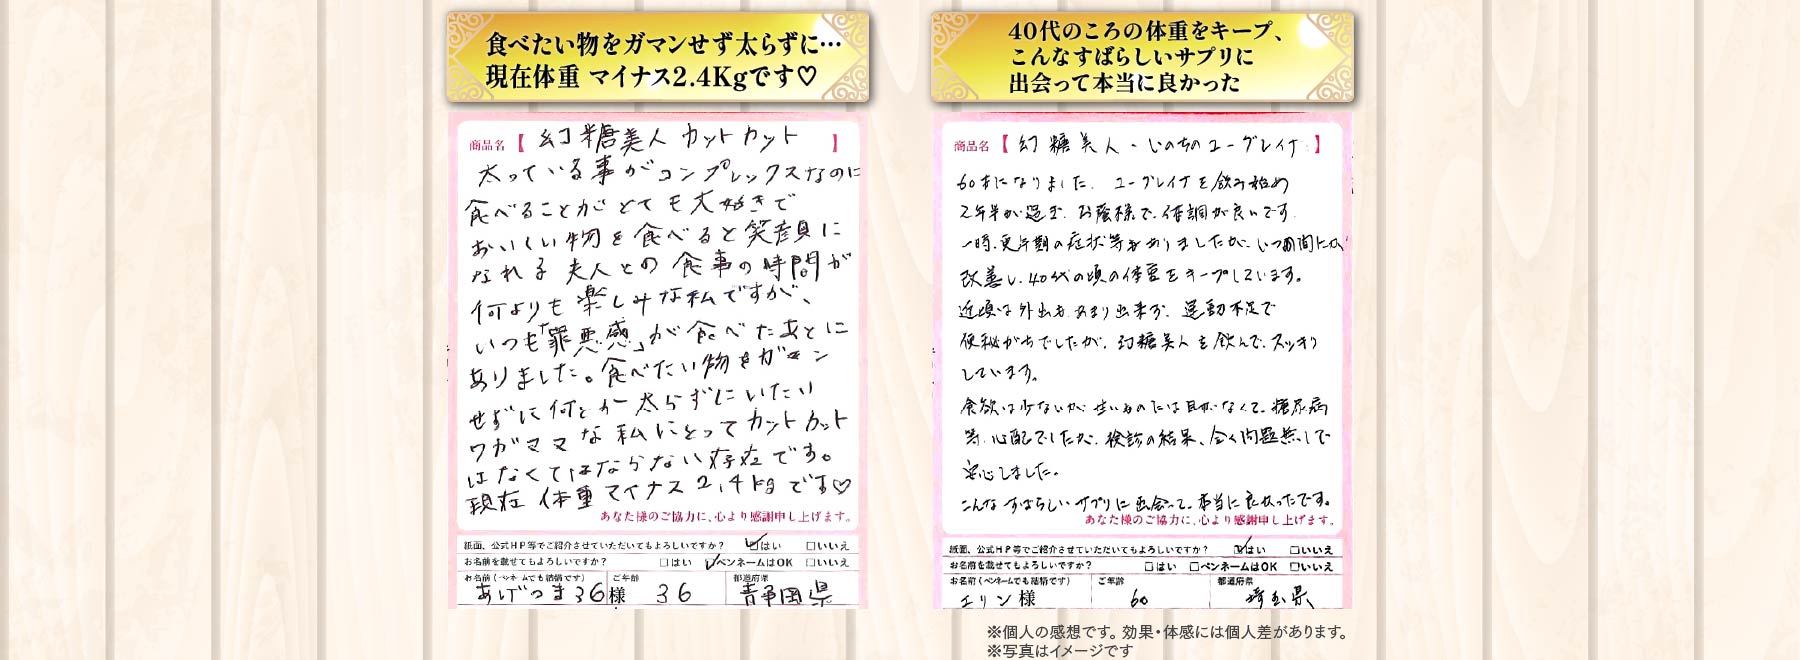 食べたい物をガマンせず太らずに…
現在体重 マイナス2.4Kgです♡
商品名【 幻糖美人 カットカット 】
太っている事がコンプレックスなのに
食べることがとても大好きで
おいしい物を食べると笑顔に
なれる 夫人との食事の時間が
何よりも楽しみな私ですが、
いつも「罪悪感」が食べたあとに
ありました。食べたい物をガマン
せずに何とか太らずにいたい
ワガママな私にとってカットカット
はなくてはならない存在です。
現在 体重 マイナス2.4kgです♡
あなた様のご協力に、心より感謝申し上げます。
紙面、公式HP等でご紹介させていただいてもよろしいですか? ☑はい □いいえ
お名前を載せてもよろしいですか? □はい ☑ペンネームはOK □いいえ
お名前(ペンネームでも結構です) ご年齢 都道府県
あげつま36様 36 静岡県
40代のころの体重をキープ、
こんなすばらしいサプリに
出会って本当に良かった
商品名【 幻糖美人・いのちのユーグレナ 】
60才になりました。ユーグレナを飲み始め
2年半が過ぎ、お蔭様で、体調が良いです。
一時、更年期の症状等ありましたが、いつの間にか
改善し、40代の頃の体重をキープしています。
近頃は外出もあまり出来ず、運動不足で
便秘がちでしたが、幻糖美人を飲んで、スッキリ
しています。
食欲は少ないが、甘いものには目がなくて、糖尿病
等、心配でしたが、検診の結果、全く問題無しで
安心しました。
こんなすばらしいサプリに出会って、本当に良かったです。
あなた様のご協力に、心より感謝申し上げます。
紙面、公式HP等でご紹介させていただいてもよろしいですか? ☑はい □いいえ
お名前を載せてもよろしいですか? □はい □ペンネームはOK □いいえ
お名前(ペンネームでも結構です) ご年齢 都道府県
エリン様 60 埼玉県
※個人の感想です。効果・体感には個人差があります。
※写真はイメージです